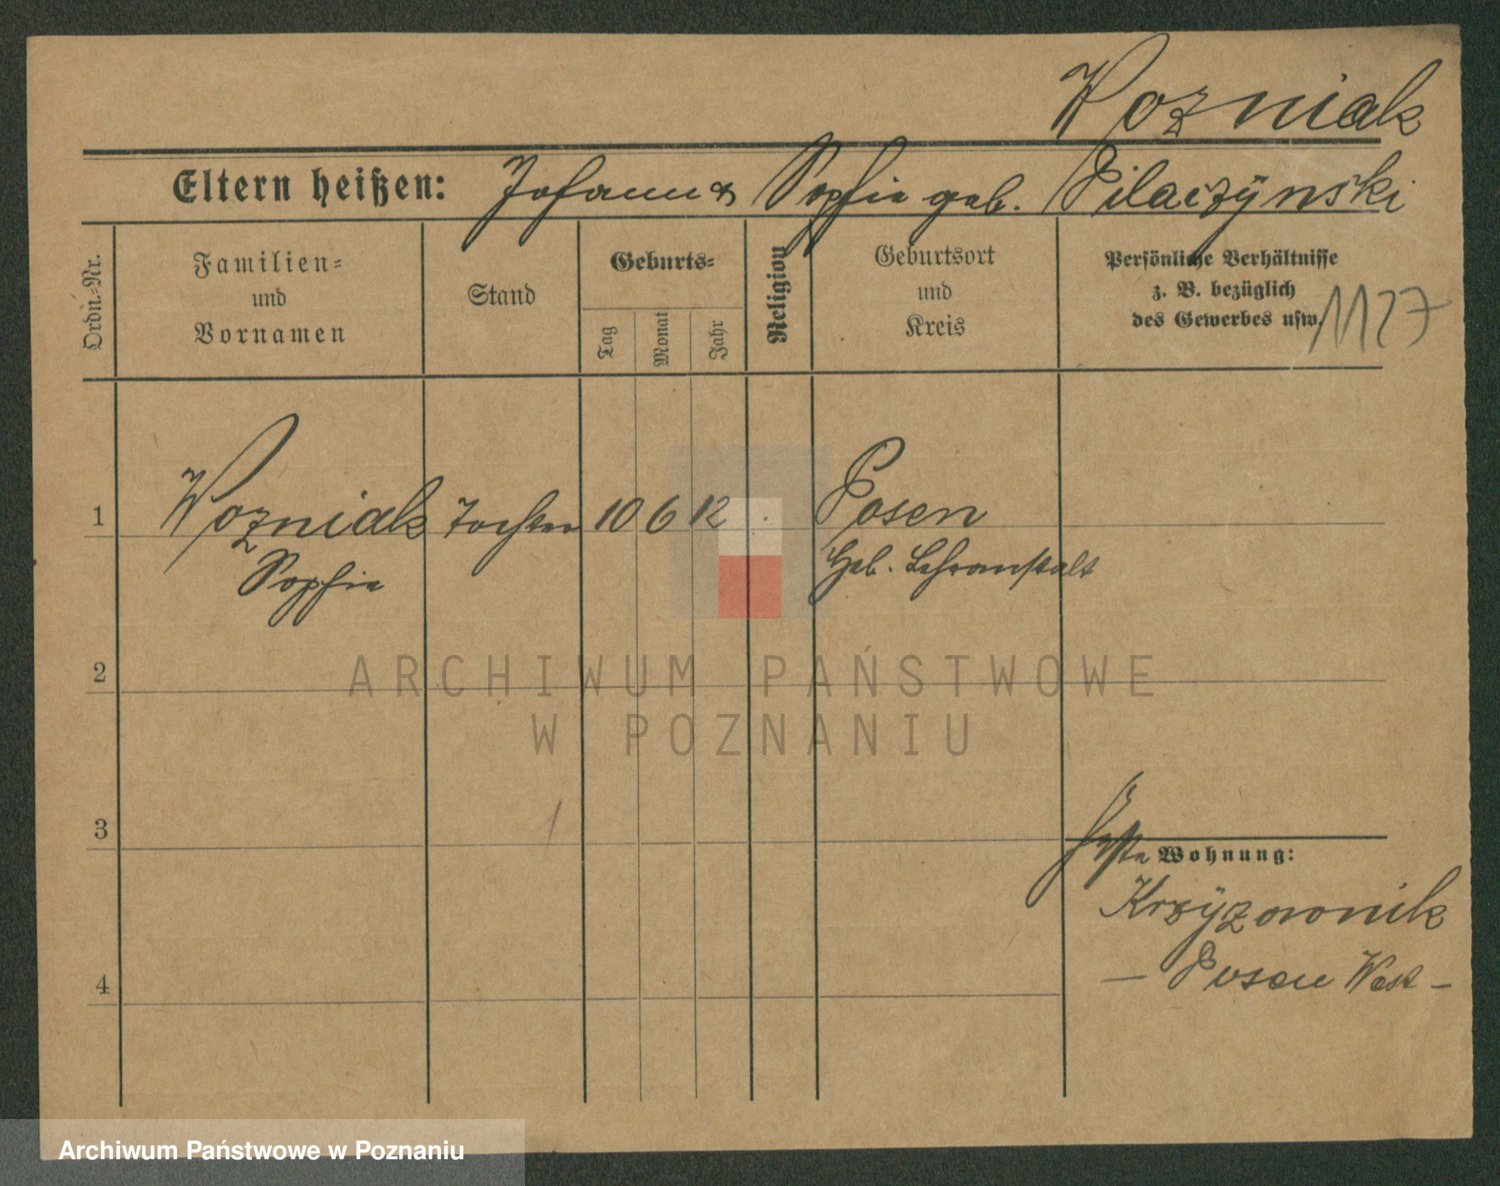 Wozniak
Eltern heißen: Johann & Sophie geb. Pilaczÿnski
Ordn.-Nr.
Familien-
und
Vornamen
Stand
Geburts-
Tag
Monat
Jahr
Religion
Geburtsort
und
Kreis
Persönliche Verhältnisse
z. B. bezüglich
des Gewerbes usw.
1127
1 Wozniak Tochter 10 6 12 Posen
Sophie Heb. Lehranstalt
2
ARCHIWUM PAŃSTWOWE
W POZNANIU
3
Wohnung:
Krzÿzownik
4
— Posen West —
Archiwum Państwowe w Poznaniu